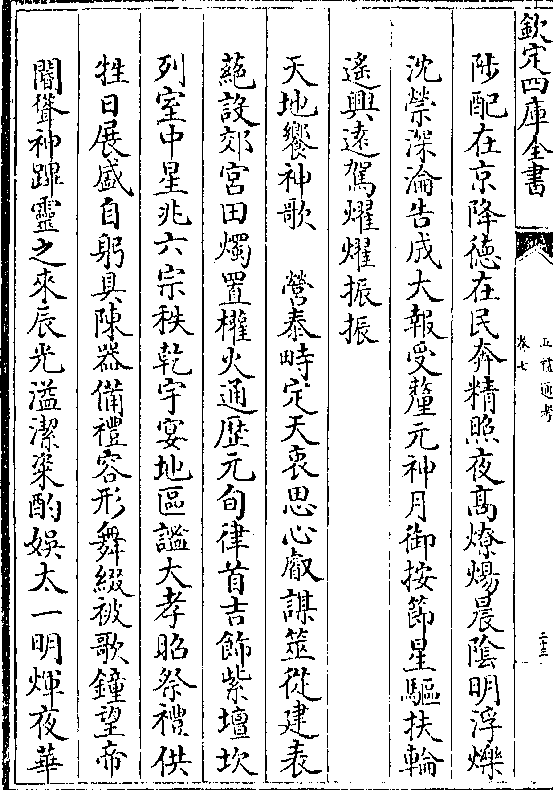 欽定四庫全書
五禮通考
卷七
二十三
陟配在京降德在民奔精照夜髙燎煬晨隂明浮爍
沈禜深淪告成大報受釐元神月御按節星驅扶輪
遙興逺駕燿燿振振
天地饗神歌　營泰畤定天衷思心叡謀筮從建表
蕝設郊宫田燭置爟火通歴元旬律首吉飾紫壇坎
列室中星兆六宗秩乾宇宴地區謐大孝昭祭禮供
牲日展盛自躬具陳器備禮容形舞綴被歌鐘望帝
閽聳神蹕靈之來辰光溢潔粢酌娛太一明煇夜華